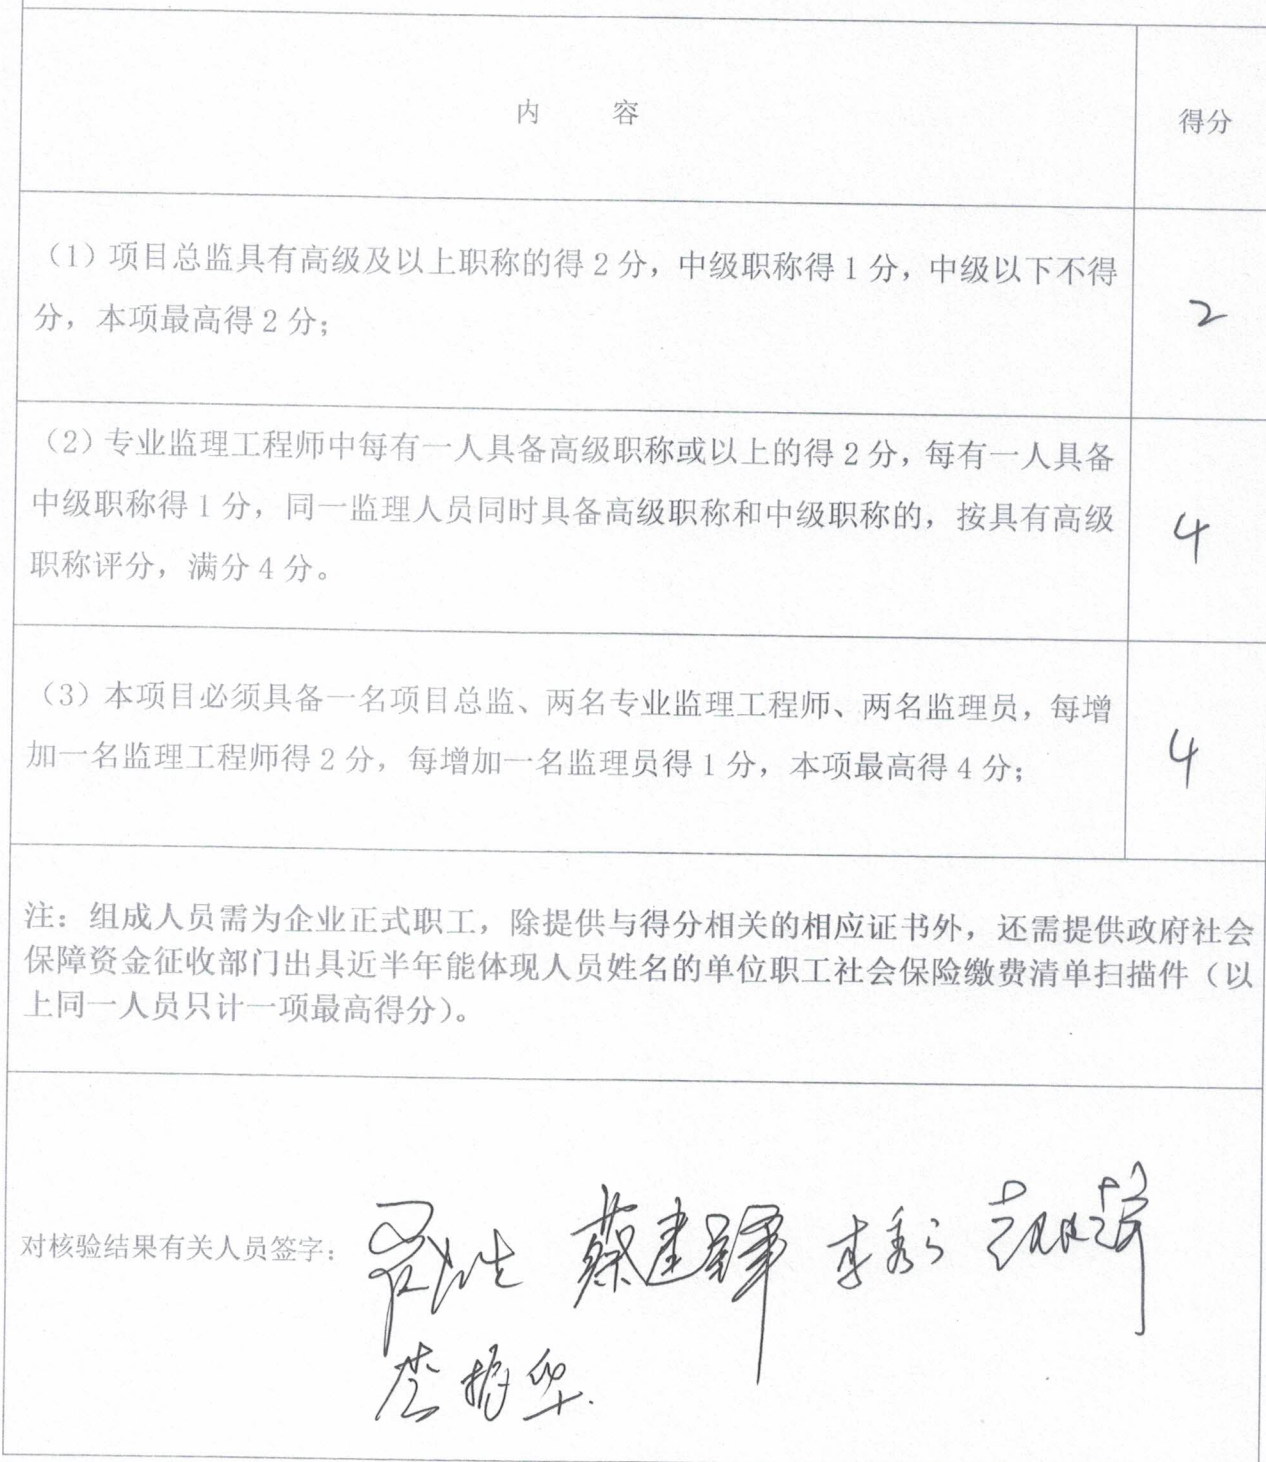 内 容 得分
（1）项目总监具有高级及以上职称的得 2 分，中级职称得 1 分，中级以下不得
分，本项最高得 2 分；
2
（2）专业监理工程师中每有一人具备高级职称或以上的得 2 分，每有一人具备
中级职称得 1 分，同一监理人员同时具备高级职称和中级职称的，按具有高级
职称评分，满分 4 分。
4
（3）本项目必须具备一名项目总监、两名专业监理工程师、两名监理员，每增
加一名监理工程师得 2 分，每增加一名监理员得 1 分，本项最高得 4 分；
4
注：组成人员需为企业正式职工，除提供与得分相关的相应证书外，还需提供政府社会
保障资金征收部门出具近半年能体现人员姓名的单位职工社会保险缴费清单扫描件（以
上同一人员只计一项最高得分）。
对核验结果有关人员签字： 蔡建锋